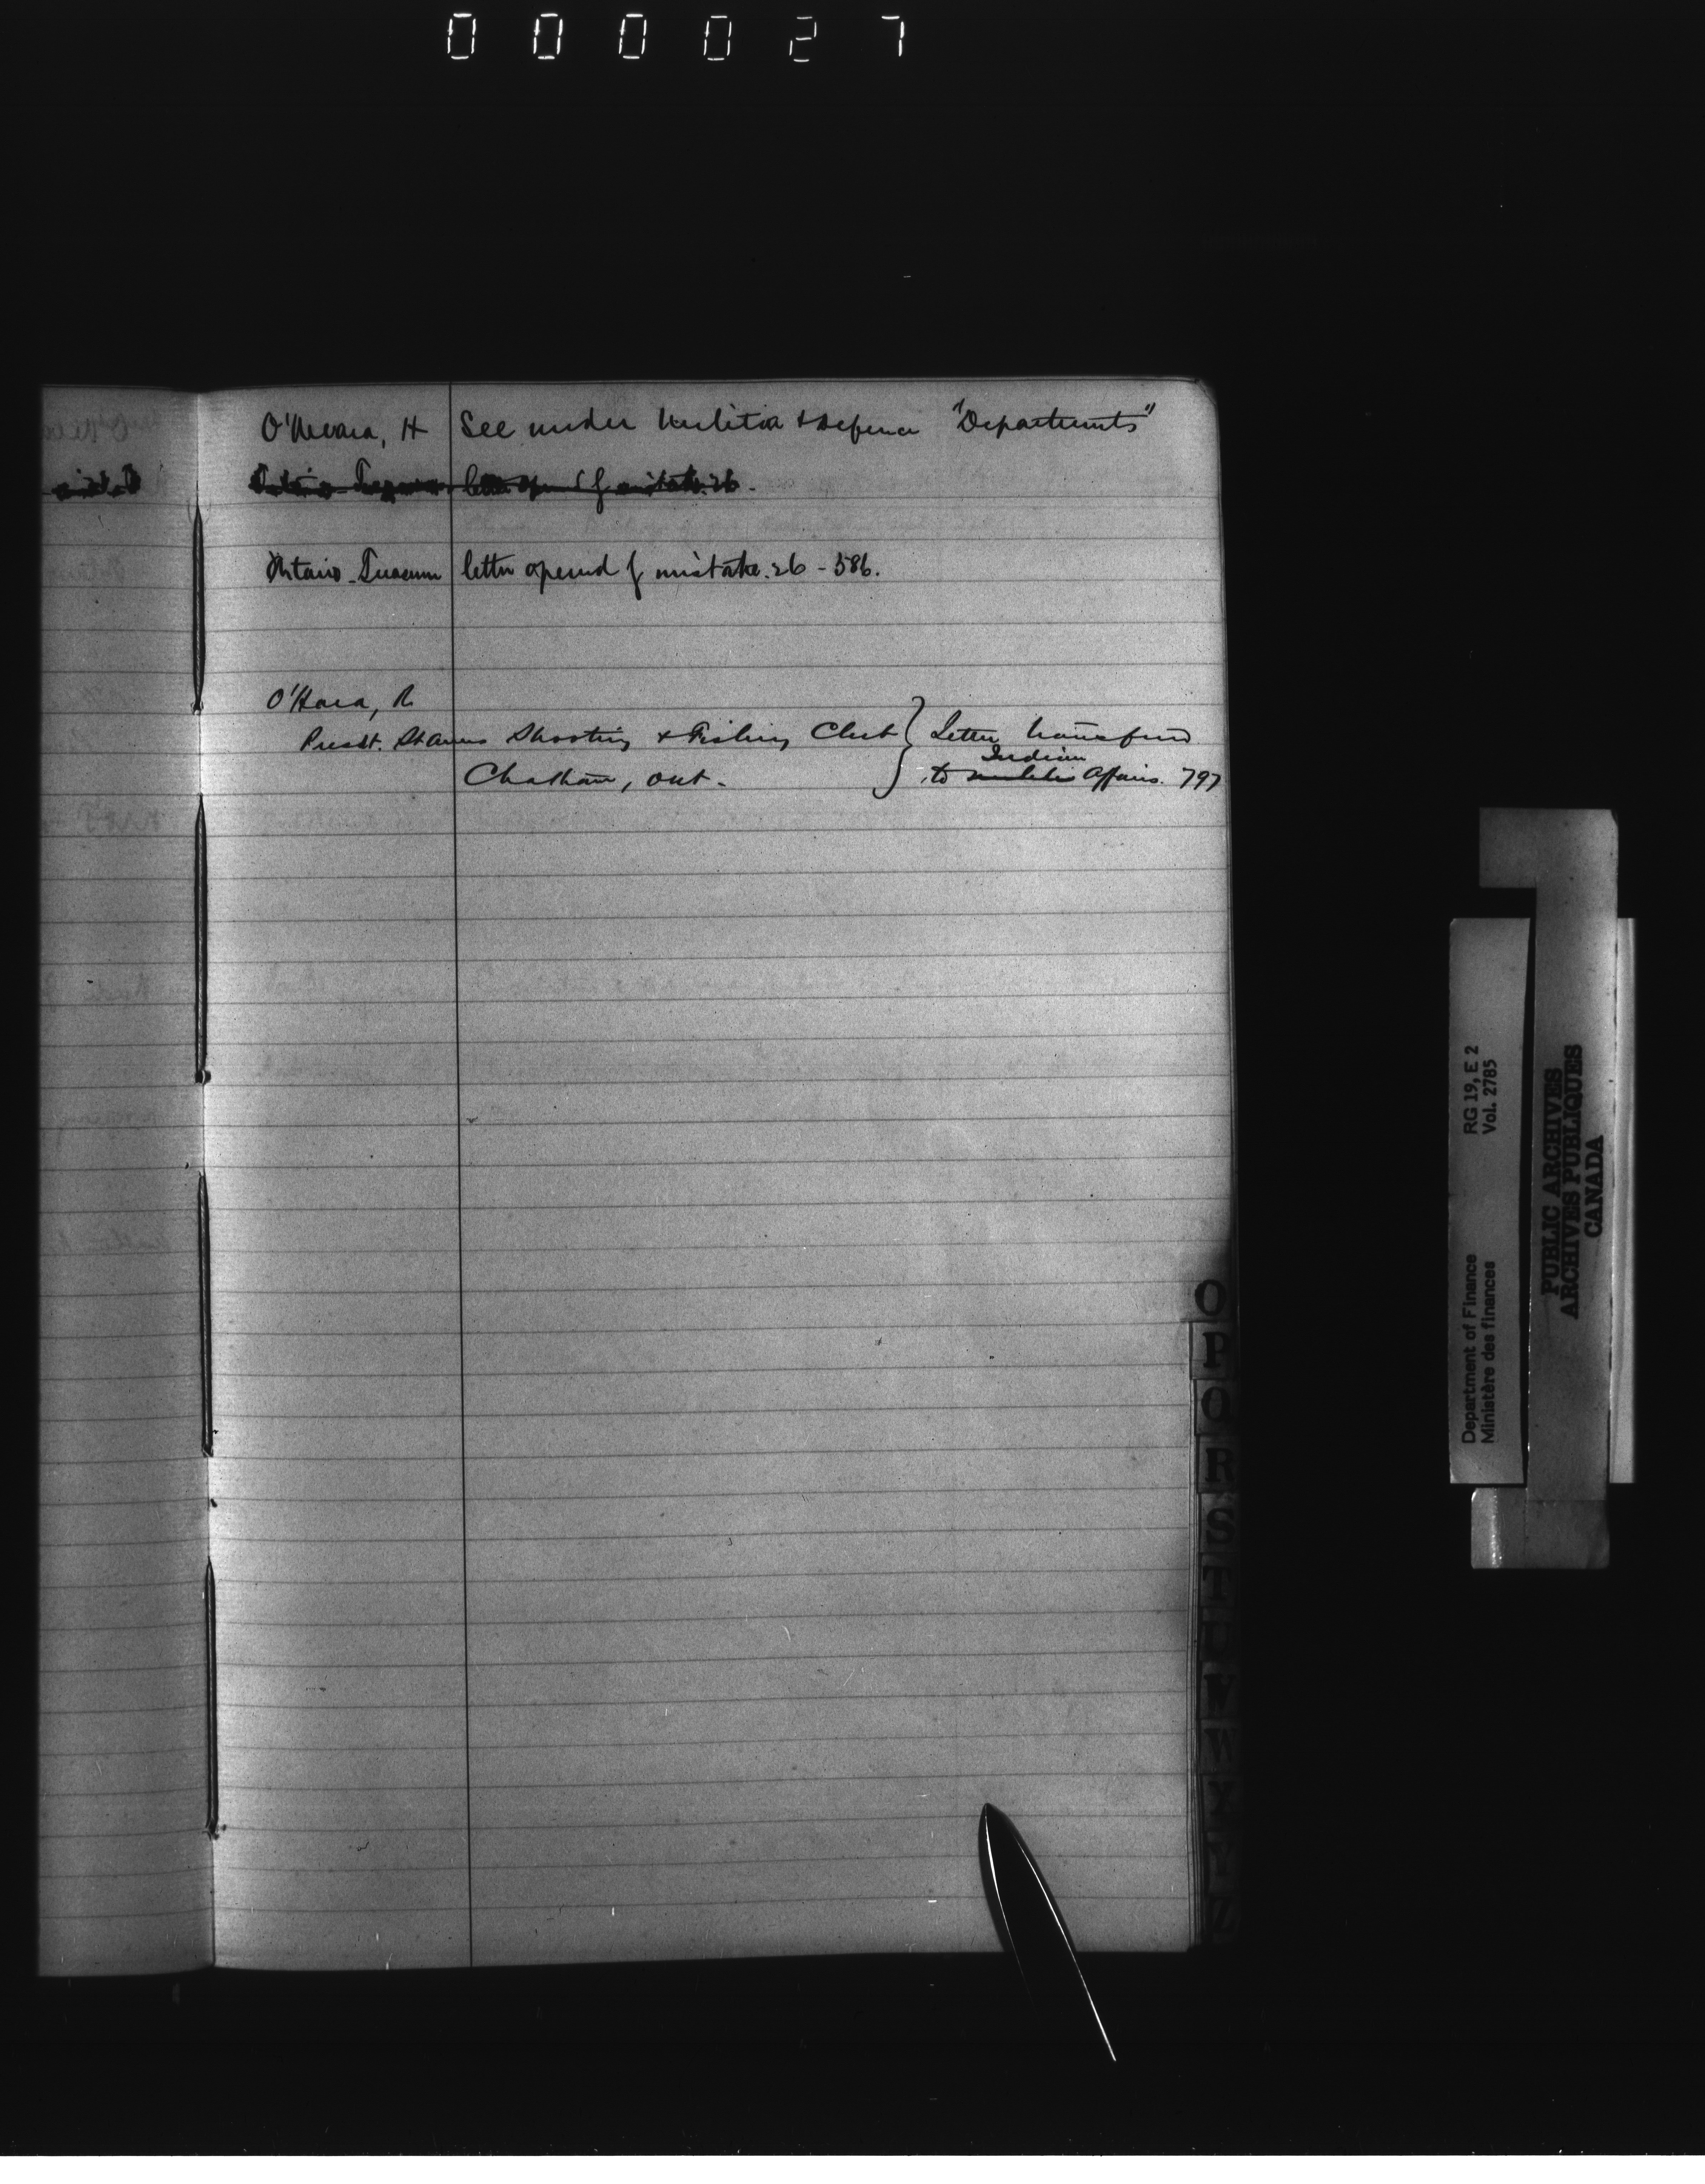 000027
O'Meara, H See under Militia & Defence "Departments"
letter opened by mistake. 26.
Ontario Treasurer letter opened by mistake. 26 - 586.
O'Hara, R
Presdt. St Annes Shooting & Fishing Club } Letter transferred
Indian
Chatham, Ont. - to Militia Affairs. 797
O
P
Q
R
S
T
U
V
W
X
Y
Z
Department of Finance RG 19, E 2
Ministère des finances Vol. 2785
PUBLIC ARCHIVES
ARCHIVES PUBLIQUES
CANADA